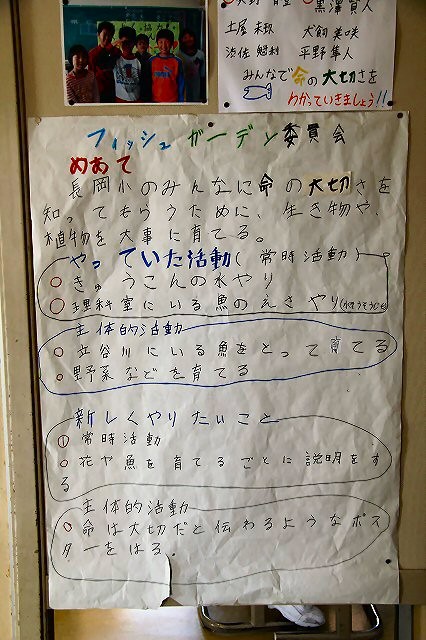 黒澤
土屋
犬飼 美咲
平野 隼人
みんなで命の大切さを
わかっていきましょう!!
フィッシュガーデン委員会
めあて
長岡小のみんなに命の大切さを
知ってもらうために、生き物や、
植物を大事に育てる。
やっていた活動(常時活動)
○きゅうこんの水やり
○理科室にいる魚のえさやり(水そうそうじも)
主体的活動
○立谷川にいる魚をとって育てる
○野菜などを育てる
新しくやりたいこと
① 常時活動
○花や魚を育てるごとに説明をす
る
主体的活動
○命は大切だと伝わるようなポス
ターをはる。